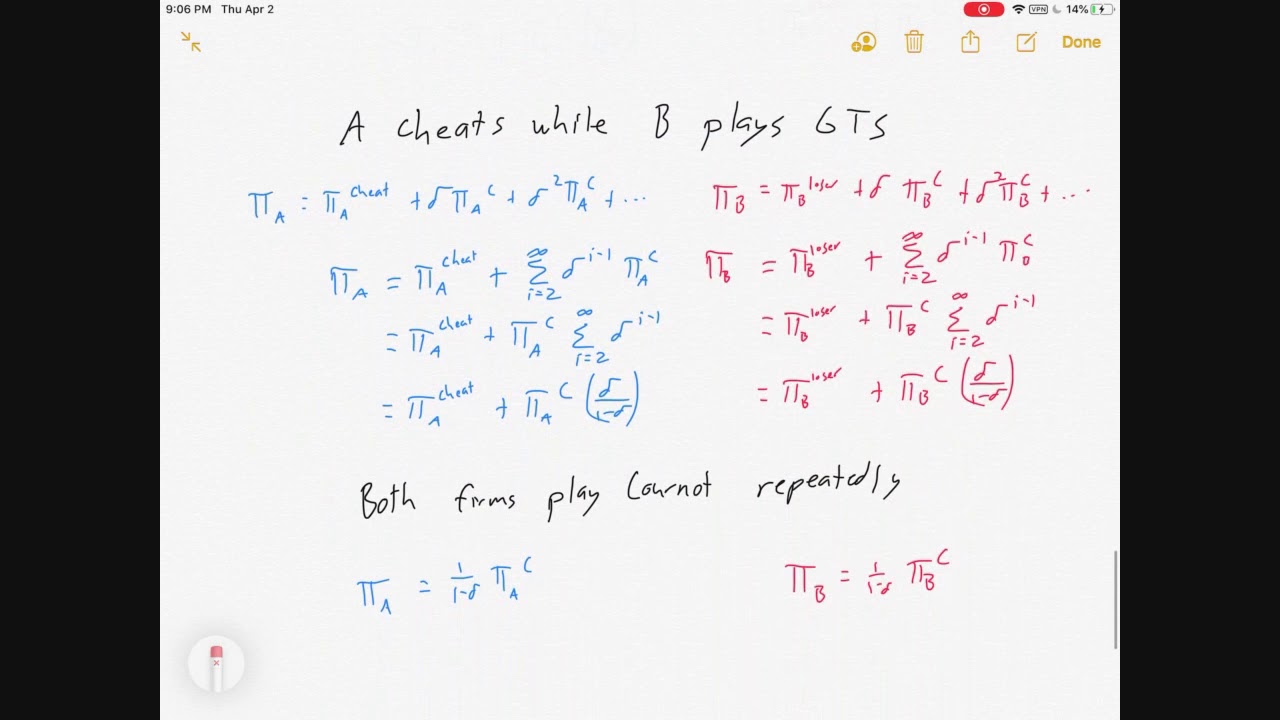 9:06 PM Thu Apr 2 VPN 14%
Done
A cheats while B plays GTS
π_A = π_A^cheat + δπ_A^C + δ^2 π_A^C + ...
π_B = π_B^loser + δ π_B^C + δ^2 π_B^C + ...
π_A = π_A^cheat + Σ_{i=2}^∞ δ^{i-1} π_A^C
π_B = π_B^loser + Σ_{i=2}^∞ δ^{i-1} π_B^C
= π_A^cheat + π_A^C Σ_{i=2}^∞ δ^{i-1}
= π_B^loser + π_B^C Σ_{i=2}^∞ δ^{i-1}
= π_A^cheat + π_A^C (δ/(1-δ))
= π_B^loser + π_B^C (δ/(1-δ))
Both firms play Cournot repeatedly
π_A = 1/(1-δ) π_A^C
π_B = 1/(1-δ) π_B^C